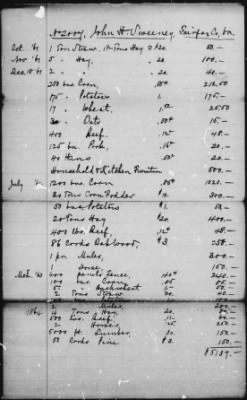 No 2007, John H. Sweeney, Fairfax Co, Va
Oct. '61 1 Ton Straw, 1½ Tons Hay @ $20 50.—
Nov '61 5 " Hay, " 20. 100.—
Dec. 10 '61 2 " " 20. 40.—
250 bus Corn, .85¢ 212.50
175 " Potatoes 1. 175.—
17 " Wheat, 1.50 25.50
30 " Oats .50¢ 15.—
400 Beef, 12¢ 48.—
125 lbs. Pork, 16. 20.—
40 Hens .50¢ 20.—
Household & Kitchen Furniture 500.—
July 1200 bus Corn .85¢ 1020.—
20 Tons Corn Fodder 300.—
50 bus Potatoes $1. 50.—
20 Tons Hay $20. 400.—
400 lbs. Beef, 12¢ 48.—
86 Cords Oak Wood, $3 258.—
1 pr. Mules, 300.—
1 Horse, 150.—
Mch. panels Fence, 240.—
100 bus. Corn
" Buckwheat
2 Tons Straw
2 " Mules
1862 4 Tons Hay, 20.
500 lbs. Beef,
2 Horses, 125. 250.—
5000 ft. Lumber, 30. 150.—
50 Cords Pine $3 150.—
$5139.—